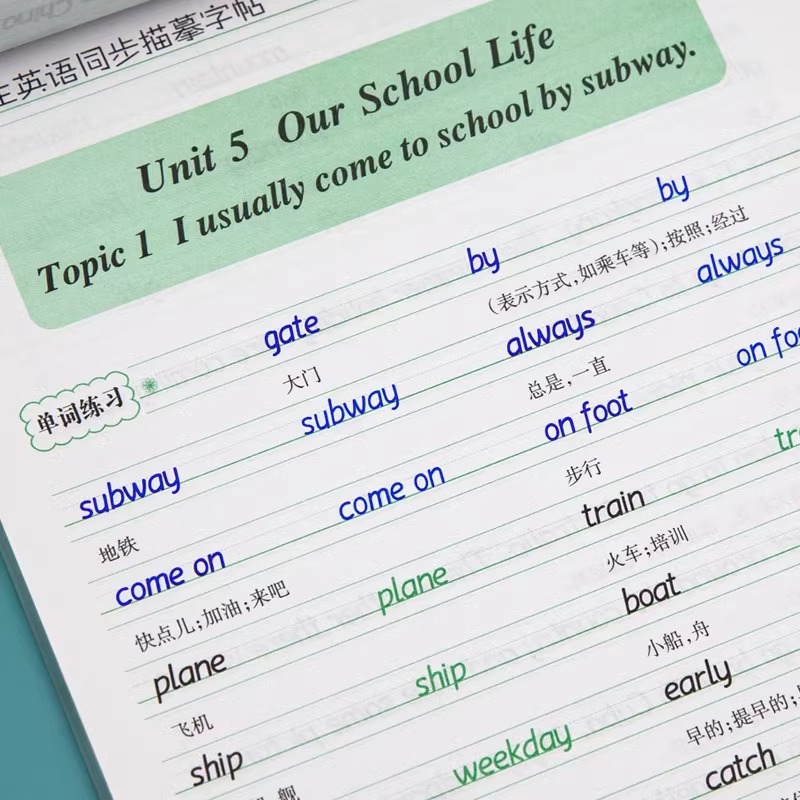 英语同步描摹字帖
Unit 5 Our School Life
Topic 1 I usually come to school by subway.
单词练习 gate by by
大门 (表示方式,如乘车等);按照;经过
subway subway always always
地铁 总是,一直
come on come on on foot on
快点儿;加油;来吧 步行
plane plane train
飞机 火车;培训
ship ship boat
舰 小船,舟
weekday early
早的;提早的;
catch